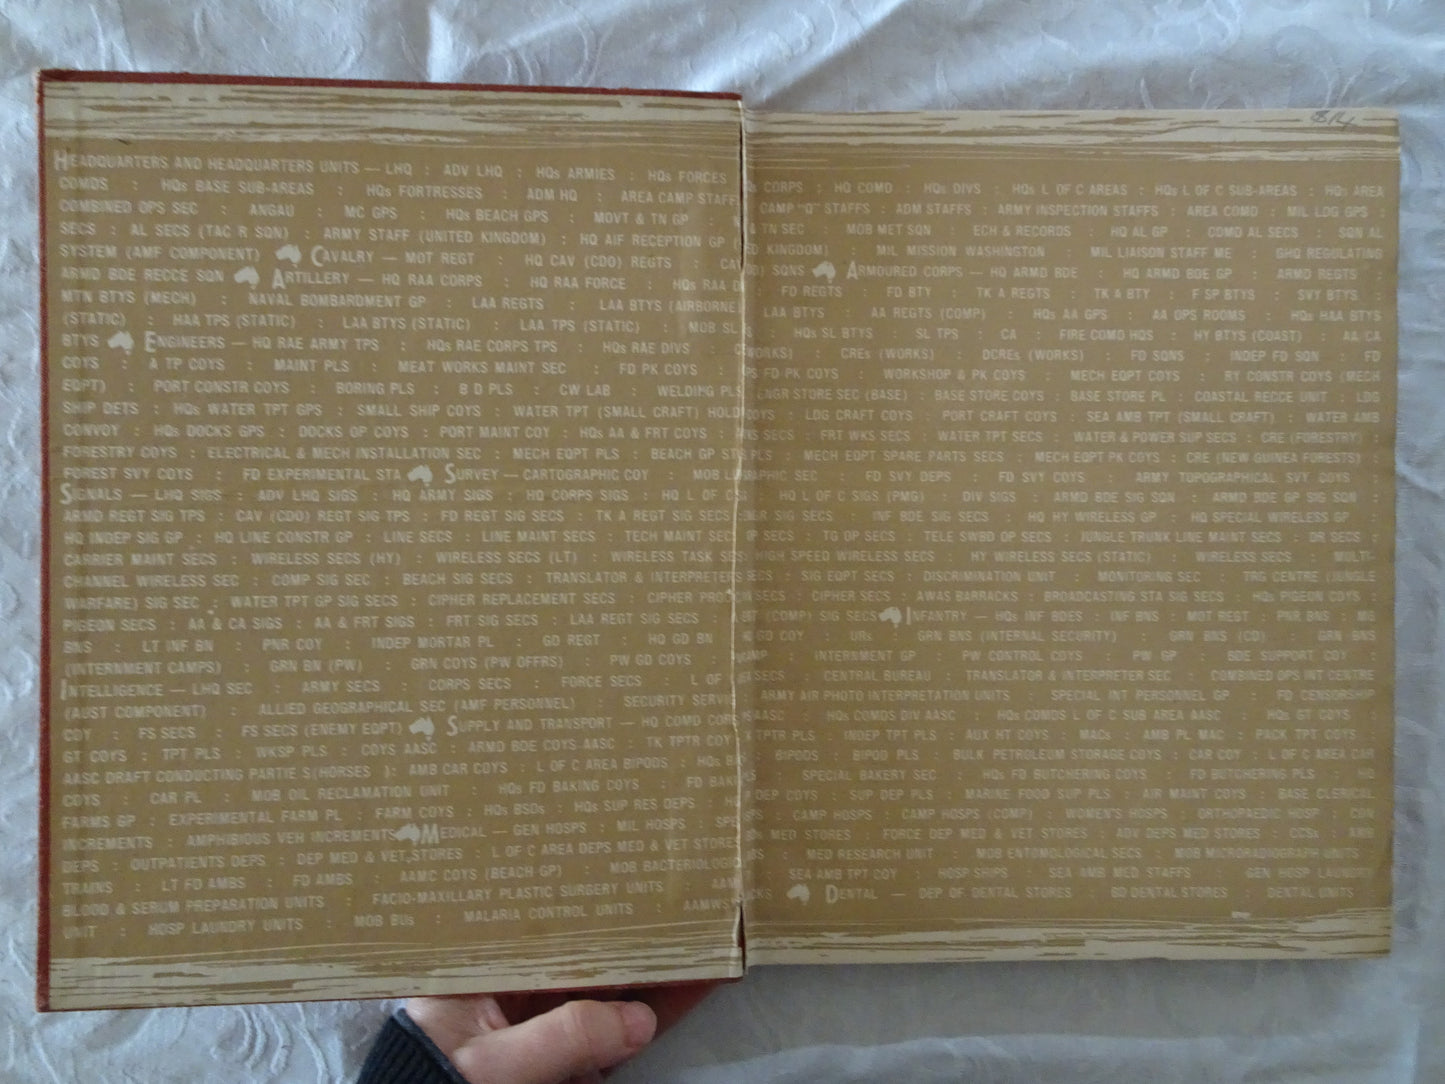 HEADQUARTERS AND HEADQUARTERS UNITS — LHQ : ADV LHQ : HQs ARMIES : HQs FORCES CORPS : HQ COMD : HQs DIVS : HQs L OF C AREAS : HQs L OF C SUB-AREAS : HQs AREA
COMDS : HQs BASE SUB-AREAS : HQs FORTRESSES : ADM HQ : AREA CAMP STAFF CAMP "Q" STAFFS : ADM STAFFS : ARMY INSPECTION STAFFS : AREA COMD : MIL LDG GPS :
COMBINED OPS SEC : ANGAU : MC GPS : HQs BEACH GPS : MOVT & TN GP & TN SEC : MOB MET SQN : ECH & RECORDS : HQ AL GP : COMD AL SECS : SQN AL
SECS : AL SECS (TAC R SQN) : ARMY STAFF (UNITED KINGDOM) : HQ AIF RECEPTION GP KINGDOM) : MIL MISSION WASHINGTON : MIL LIAISON STAFF ME : GHQ REGULATING
SYSTEM (AMF COMPONENT) CAVALRY — MOT REGT : HQ CAV (CDO) REGTS : SQNS ARMOURED CORPS — HQ ARMD BDE : HQ ARMD BDE GP : ARMD REGTS :
ARMD BDE RECCE SQN ARTILLERY — HQ RAA CORPS : HQ RAA FORCE : HQs RAA FD REGTS : FD BTY : TK A REGTS : TK A BTY : F SP BTYS : SVY BTYS :
MTN BTYS (MECH) : NAVAL BOMBARDMENT GP : LAA REGTS : LAA BTYS (AIRBORNE LAA BTYS : AA REGTS (COMP) : HQs AA GPS : AA OPS ROOMS : HQs HAA BTYS
(STATIC) : HAA TPS (STATIC) : LAA BTYS (STATIC) : LAA TPS (STATIC) : MOB : HQs SL BTYS : SL TPS : CA : FIRE COMD HQS : HY BTYS (COAST) : AA/CA
BTYS ENGINEERS — HQ RAE ARMY TPS : HQs RAE CORPS TPS : HQs RAE DIVS : : CREs (WORKS) : DCREs (WORKS) : FD SQNS : INDEP FD SQN : FD
COYS : A TP COYS : MAINT PLS : MEAT WORKS MAINT SEC : FD PK COYS : FD PK COYS : WORKSHOP & PK COYS : MECH EQPT COYS : RY CONSTR COYS (MECH
EQPT) : PORT CONSTR COYS : BORING PLS : B D PLS : CW LAB : WELDING PLS STORE SEC (BASE) : BASE STORE COYS : BASE STORE PL : COASTAL RECCE UNIT : LDG
SHIP DETS : HQs WATER TPT GPS : SMALL SHIP COYS : WATER TPT (SMALL CRAFT) COYS : LDG CRAFT COYS : PORT CRAFT COYS : SEA AMB TPT (SMALL CRAFT) : WATER AMB
CONVOY : HQs DOCKS GPS : DOCKS OP COYS : PORT MAINT COY : HQs AA & FRT COYS : SECS : FRT WKS SECS : WATER TPT SECS : WATER & POWER SUP SECS : CRE (FORESTRY) :
FORESTRY COYS : ELECTRICAL & MECH INSTALLATION SEC : MECH EQPT PLS : BEACH GP PLS : MECH EQPT SPARE PARTS SECS : MECH EQPT PK COYS : CRE (NEW GUINEA FORESTS) :
FOREST SVY COYS : FD EXPERIMENTAL STA SURVEY — CARTOGRAPHIC COY : MOB SEC : FD SVY DEPS : FD SVY COYS : ARMY TOPOGRAPHICAL SVY COYS :
SIGNALS — LHQ SIGS : ADV LHQ SIGS : HQ ARMY SIGS : HQ CORPS SIGS : HQ L OF C : HQ L OF C SIGS (PMG) : DIV SIGS : ARMD BDE SIG SQN : ARMD BDE GP SIG SQN :
ARMD REGT SIG TPS : CAV (CDO) REGT SIG TPS : FD REGT SIG SECS : TK A REGT SIG SECS SIG SECS : INF BDE SIG SECS : HQ HY WIRELESS GP : HQ SPECIAL WIRELESS GP :
HQ INDEP SIG GP : HQ LINE CONSTR GP : LINE SECS : LINE MAINT SECS : TECH MAINT SECS SECS : TG OP SECS : TELE SWBD OP SECS : JUNGLE TRUNK LINE MAINT SECS : DR SECS :
CARRIER MAINT SECS : WIRELESS SECS (HY) : WIRELESS SECS (LT) : WIRELESS TASK HIGH SPEED WIRELESS SECS : HY WIRELESS SECS (STATIC) : WIRELESS SECS : MULTI-
CHANNEL WIRELESS SEC : COMP SIG SEC : BEACH SIG SECS : TRANSLATOR & INTERPRETER SECS : SIG EQPT SECS : DISCRIMINATION UNIT : MONITORING SEC : TRG CENTRE (JUNGLE
WARFARE) SIG SEC : WATER TPT GP SIG SECS : CIPHER REPLACEMENT SECS : CIPHER SECS : CIPHER SECS : AWAS BARRACKS : BROADCASTING STA SIG SECS : HQs PIGEON COYS :
PIGEON SECS : AA & CA SIGS : AA & FRT SIGS : FRT SIG SECS : LAA REGT SIG SECS : (COMP) SIG SECS INFANTRY — HQs INF BDES : INF BNS : MOT REGT : PNR BNS : MG
BNS : LT INF BN : PNR COY : INDEP MORTAR PL : GD REGT : HQ GD BN : GD COY : URs : GRN BNS (INTERNAL SECURITY) : GRN BNS (CD) : GRN BNS
(INTERNMENT CAMPS) : GRN BN (PW) : GRN COYS (PW OFFRS) : PW GD COYS : : INTERNMENT GP : PW CONTROL COYS : PW GP : BDE SUPPORT COY :
INTELLIGENCE — LHQ SEC : ARMY SECS : CORPS SECS : FORCE SECS : L OF SECS : CENTRAL BUREAU : TRANSLATOR & INTERPRETER SEC : COMBINED OPS INT CENTRE
(AUST COMPONENT) : ALLIED GEOGRAPHICAL SEC (AMF PERSONNEL) : SECURITY ARMY AIR PHOTO INTERPRETATION UNITS : SPECIAL INT PERSONNEL GP : FD CENSORSHIP
COY : FS SECS : FS SECS (ENEMY EQPT) SUPPLY AND TRANSPORT — HQ COMD AASC : HQs COMDS DIV AASC : HQs COMDS L OF C SUB AREA AASC : HQs GT COYS :
GT COYS : TPT PLS : WKSP PLS : COYS AASC : ARMD BDE COYS AASC : TK TPTR COY TPTR PLS : INDEP TPT PLS : AUX HT COYS : MACs : AMB PL MAC : PACK TPT COYS :
AASC DRAFT CONDUCTING PARTIES (HORSES ) : AMB CAR COYS : L OF C AREA BIPODS : HQs BIPODS : BIPOD PLS : BULK PETROLEUM STORAGE COYS : CAR COY : L OF C AREA CAR
COYS : CAR PL : MOB OIL RECLAMATION UNIT : HQs FD BAKING COYS : FD : SPECIAL BAKERY SEC : HQs FD BUTCHERING COYS : FD BUTCHERING PLS : HQ
FARMS GP : EXPERIMENTAL FARM PL : FARM COYS : HQs BSDs : HQs SUP RES DEPS : DEP COYS : SUP DEP PLS : MARINE FOOD SUP PLS : AIR MAINT COYS : BASE CLERICAL
INCREMENTS : AMPHIBIOUS VEH INCREMENTS MEDICAL — GEN HOSPS : MIL HOSPS : : CAMP HOSPS : CAMP HOSPS (COMP) : WOMEN'S HOSPS : ORTHOPAEDIC HOSP : CON
DEPS : OUTPATIENTS DEPS : DEP MED & VET STORES : L OF C AREA DEPS MED & VET STORES MED STORES : FORCE DEP MED & VET STORES : ADV DEPS MED STORES : CCSs : AMB
TRAINS : LT FD AMBS : FD AMBS : AAMC COYS (BEACH GP) : MOB : MED RESEARCH UNIT : MOB ENTOMOLOGICAL SECS : MOB MICRORADIOGRAPH UNITS :
BLOOD & SERUM PREPARATION UNITS : FACIO-MAXILLARY PLASTIC SURGERY UNITS : SEA AMB TPT COY : HOSP SHIPS : SEA AMB MED STAFFS : GEN HOSP LAUNDRY
UNIT : HOSP LAUNDRY UNITS : MOB BUs : MALARIA CONTROL UNITS : AAMWS DENTAL — DEP OF DENTAL STORES : BD DENTAL STORES : DENTAL UNITS :